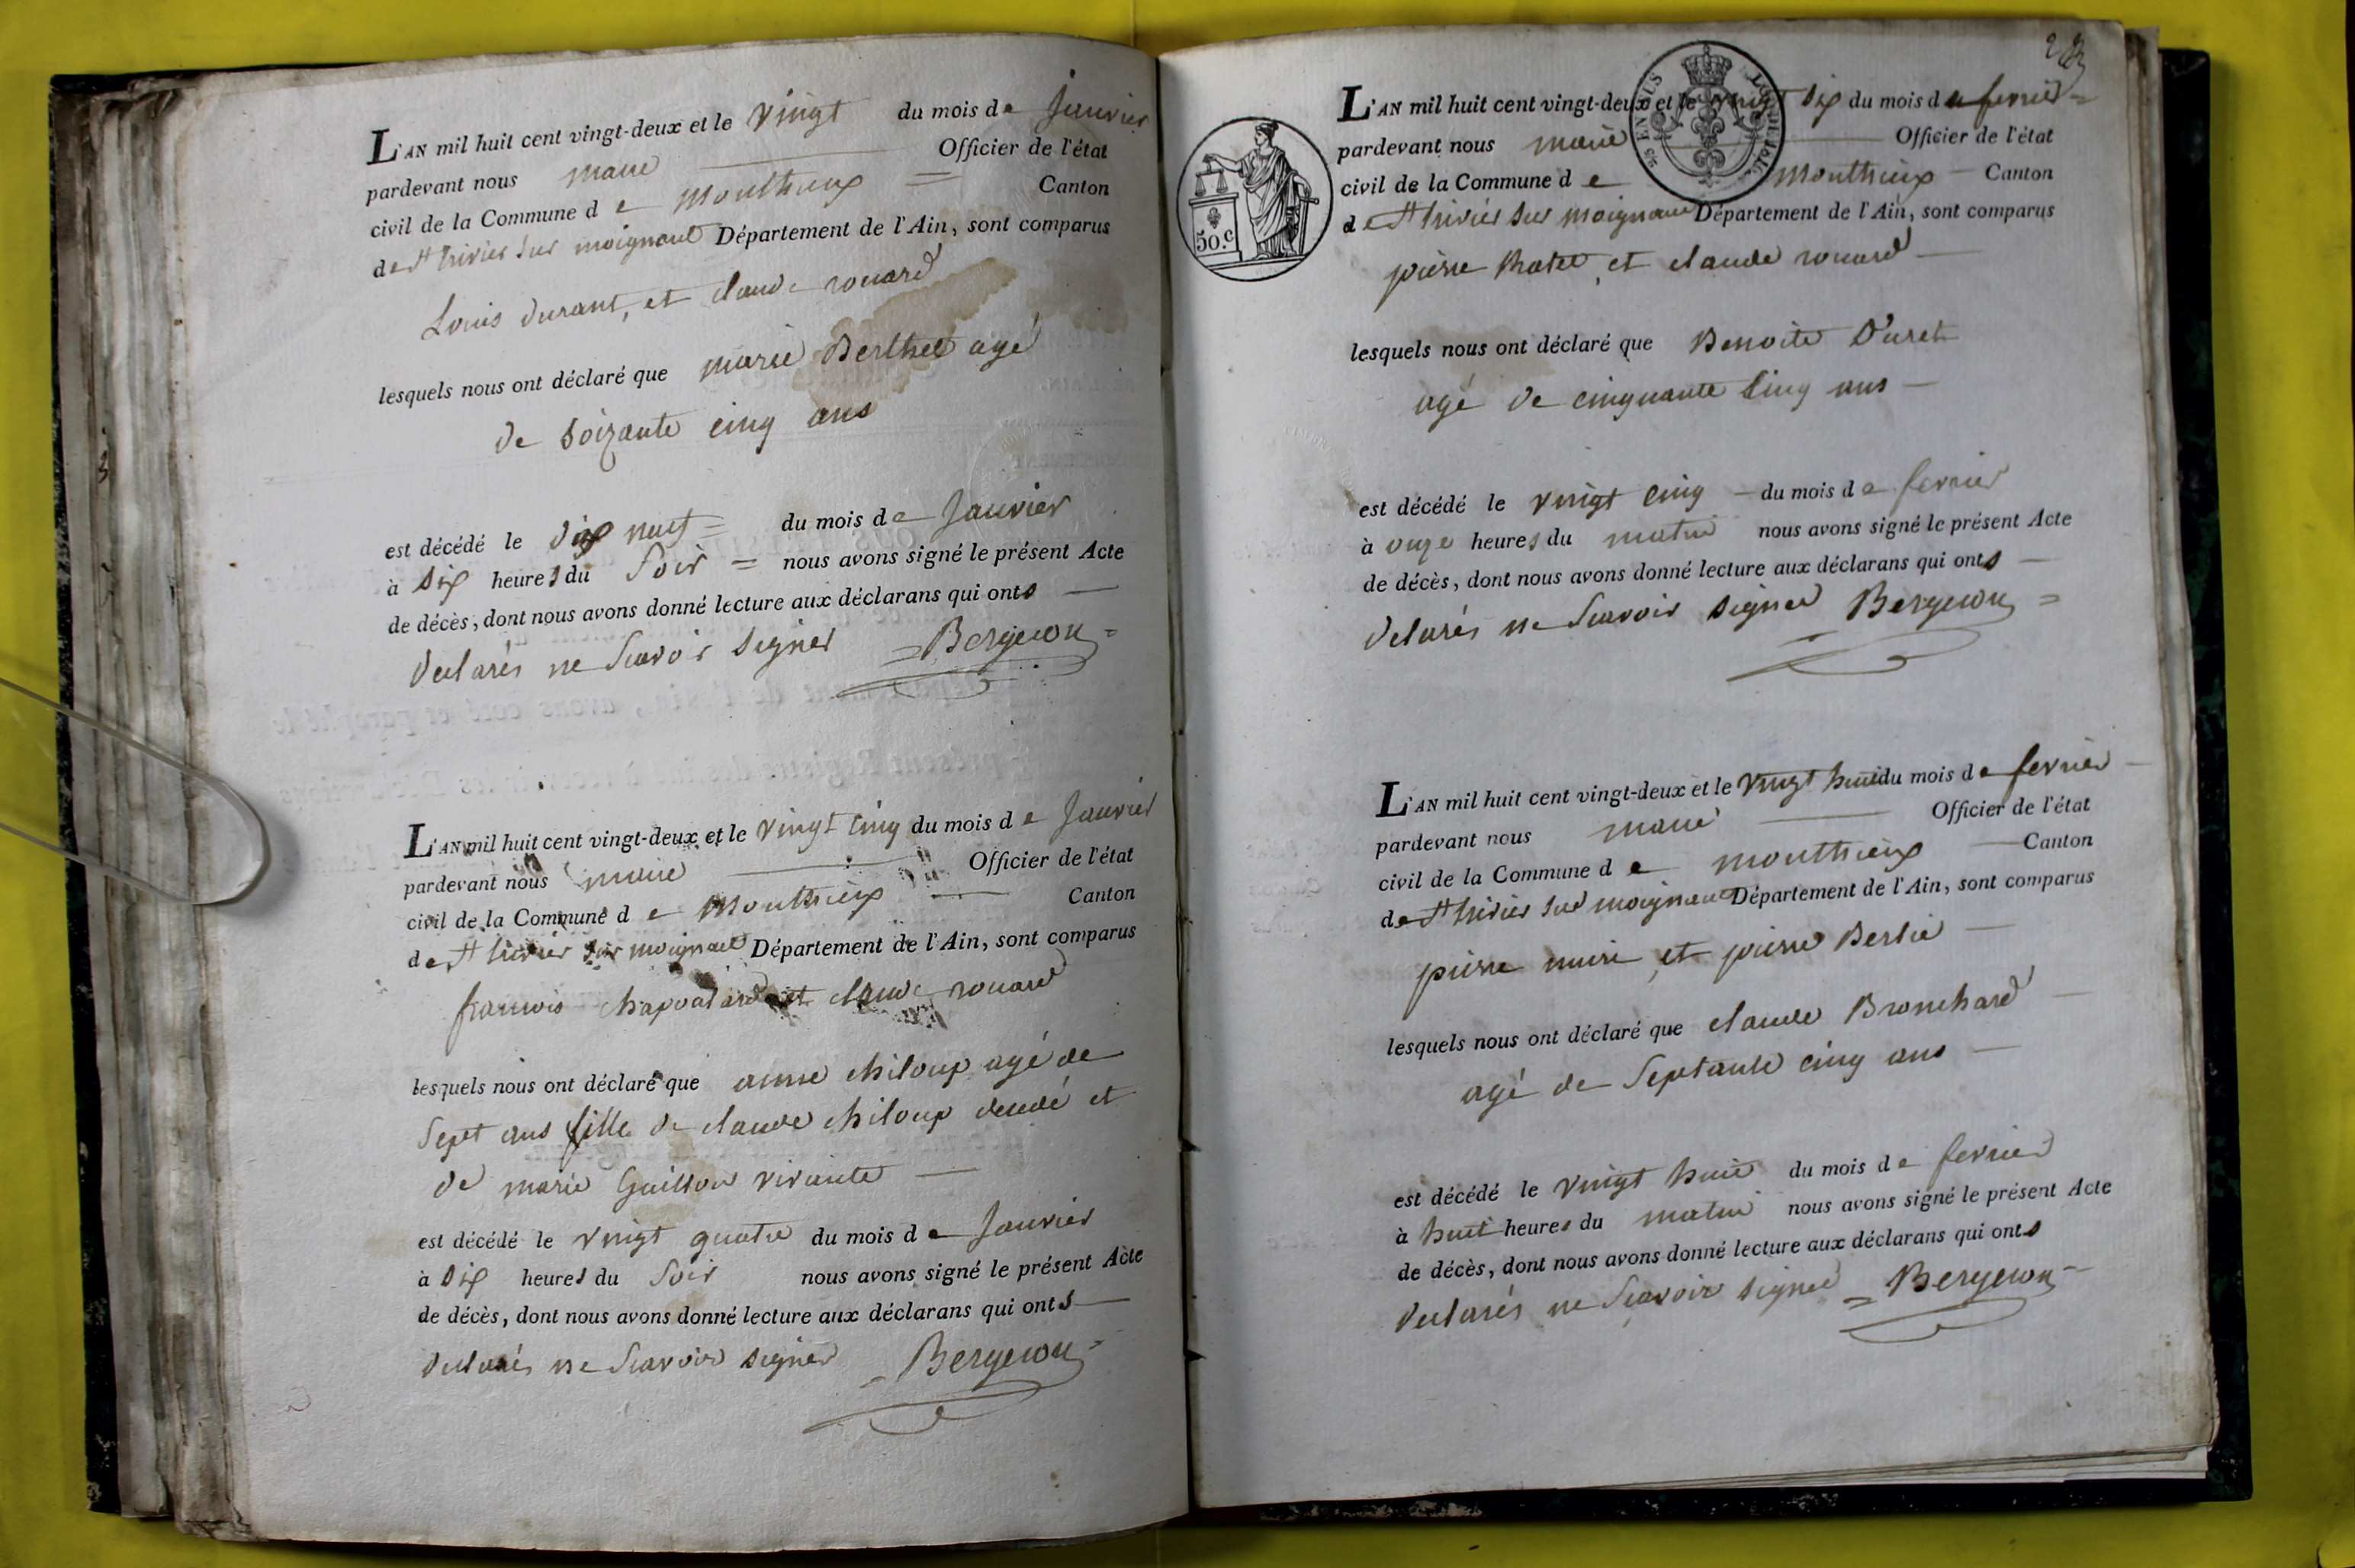 L'AN mil huit cent vingt-deux et le vingt du mois de Janvier
pardevant nous maire Officier de l'état
civil de la Commune de Monthieux = Canton
de St trivier sur moignant Département de l'Ain, sont comparus
Louis durant, et claude rouard
lesquels nous ont déclaré que marie Berthet agé
de soixante cinq ans
est décédé le dix neuf = du mois de Janvier
à six heures du soir = nous avons signé le présent Acte
de décès, dont nous avons donné lecture aux déclarans qui onts —
declarés ne Scavoir signer = Bergeron =
L'AN mil huit cent vingt-deux et le vingt cinq du mois de Janvier
pardevant nous maire — Officier de l'état
civil de la Commune de Monthieux — Canton
de St trivier sur moignant Département de l'Ain, sont comparus
francois chapolard et claude rouard
lesquels nous ont déclaré que anne chiloup agé de
Sept ans fille de claude chiloup decedé et
de marie Guillon vivante —
est décédé le vingt quatre du mois de Janvier
à six heures du soir nous avons signé le présent Acte
de décès, dont nous avons donné lecture aux déclarans qui onts —
declarés ne Scavoir signer = Bergeron =
L'AN mil huit cent vingt-deux et le vingt six du mois de fevrier =
pardevant nous maire — Officier de l'état
civil de la Commune de Monthieux — Canton
de St trivier sur moignant Département de l'Ain, sont comparus
50.c
pierre et claude rouard —
lesquels nous ont déclaré que Benoite
agé de cinquante cinq ans —
est décédé le vingt cinq — du mois de fevrier
à onze heures du matin nous avons signé le présent Acte
de décès, dont nous avons donné lecture aux déclarans qui onts —
delarés ne Scavoir signer Bergeron =
L'AN mil huit cent vingt-deux et le vingt huit du mois de fevrier —
pardevant nous maire — Officier de l'état
civil de la Commune de Monthieux — Canton
de St trivier sur moignant Département de l'Ain, sont comparus
pierre et pierre Berlie —
lesquels nous ont déclaré que claude Bronchard —
agé de Septante cinq ans —
est décédé le vingt huit du mois de fevrier
à huit heures du matin nous avons signé le présent Acte
de décès, dont nous avons donné lecture aux déclarans qui onts
declarés ne Scavoir signer = Bergeron =